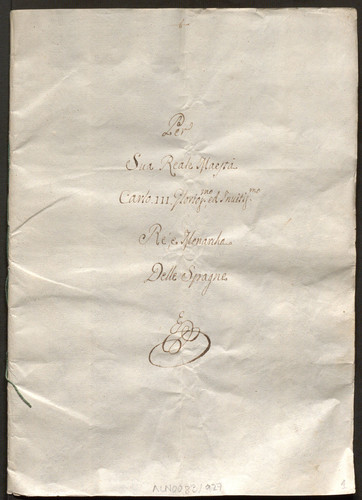 Per
Sua Reale Maestà
Carlo III. Glorios.mo ed Invitt.mo
Re, e Monarcha
Delle Spagne
927